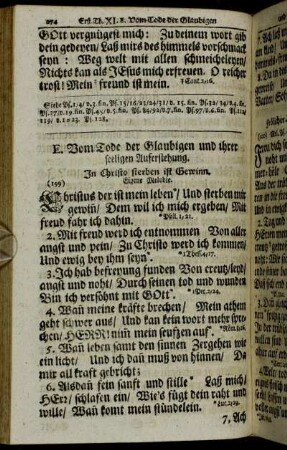 274 Erst. Th. XI. E. Vom Tode der Glaubigen
GOtt vergnügest mich: Zu deinem wort gib
dein gedeyen/ Laß mits des himmels vorschmack
seyn: Weg welt mit allen schmeicheleyen/
Nichts kan als JEsus mich erfreuen. O reicher
trost! Mein freund ist mein.
E. Vom Tode der Glaubigen und ihrer
seeligen Aufferstehung.
In Christo sterben ist Gewinn.
(199) Eigene Melodie.
Christus der ist mein leben/ Und sterben mein
gewinn/ Dem wil ich mich ergeben/ Mit
freud fahr ich dahin. * Phil. 1,21.
2. Mit freud werd ich entnommen Von aller
angst und pein/ Zu Christo werd ich kommen/
Und ewig bey ihm seyn * 1 Thess. 4/17.
3. Ich hab befreyung funden Von creutz/leyd/
angst und noht/ Durch seinen tod und wunden
Bin ich versöhnt mit GOtt*.
4. Wañ meine kräfte brechen/ Mein athem
geht schwer aus/ Und kan kein wort mehr sprechen/
HERR! nim mein seufzen auf.*
5. Wañ leben samt den sinnen Zergehen wie
ein licht/ Und ich dañ muß von hinnen/ Da
mir all kraft gebricht:
6. Alsdañ fein sanft und stille* Laß mich/
HErr/ schlafen ein/ Wie's fügt dein raht und
wille/ Wañ komt mein stündelein.
7. Ach